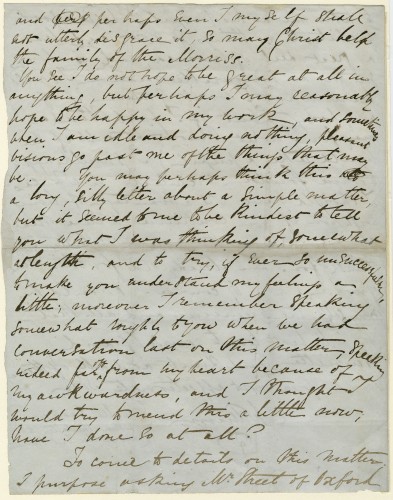 and perhaps even I myself shall
not utterly disgrace it. So may Christ help
the family of the Morriss.
You see I do not hope to be great at all in
anything, but perhaps I may reasonably
hope to be happy in my work, and sometimes
when I am idle and doing nothing, pleasant
visions go past me of the things that may
be. You may perhaps think this
a long, silly letter about a simple matter,
but it seemed to me to be kindest to tell
you what I was thinking of somewhat
at length, and to try, if ever so unsuccessfully
to make you understand my feelings a
little; moreover I remember speaking
somewhat roughly to you when we had
conversation last on this matter, speaking
indeed far from my heart because of
my awkwardness, and I thought I
would try to mend this a little now,
have I done so at all?
To come to details on this matter
I purpose asking Mr Street of Oxford